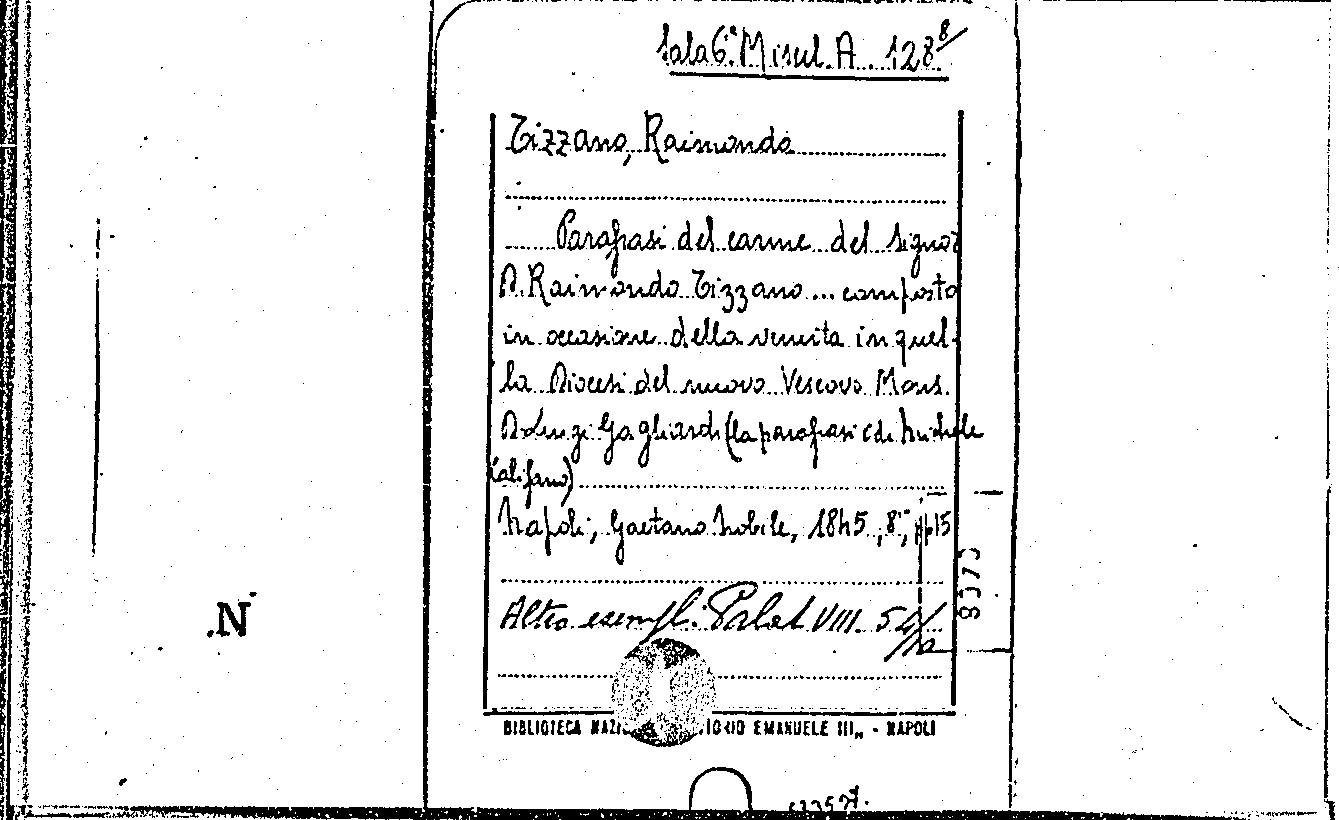 Sala 6ª Miscel. A. 128 8/
Tizzano, Raimondo
Parafrasi del carme del signor
D. Raimondo Tizzano... composto
in occasione della venuta in quel-
la Diocesi del nuovo Vescovo Mons.
D. Luigi Gagliardi (la parafrasi è di Michele
Califano)
Napoli, Gaetano Nobile, 1845, 8°, pp. 15
8373
Altro esempl: Palat VIII. 54/
N.
BIBLIOTECA NAZI IORIO EMANUELE III„ - NAPOLI